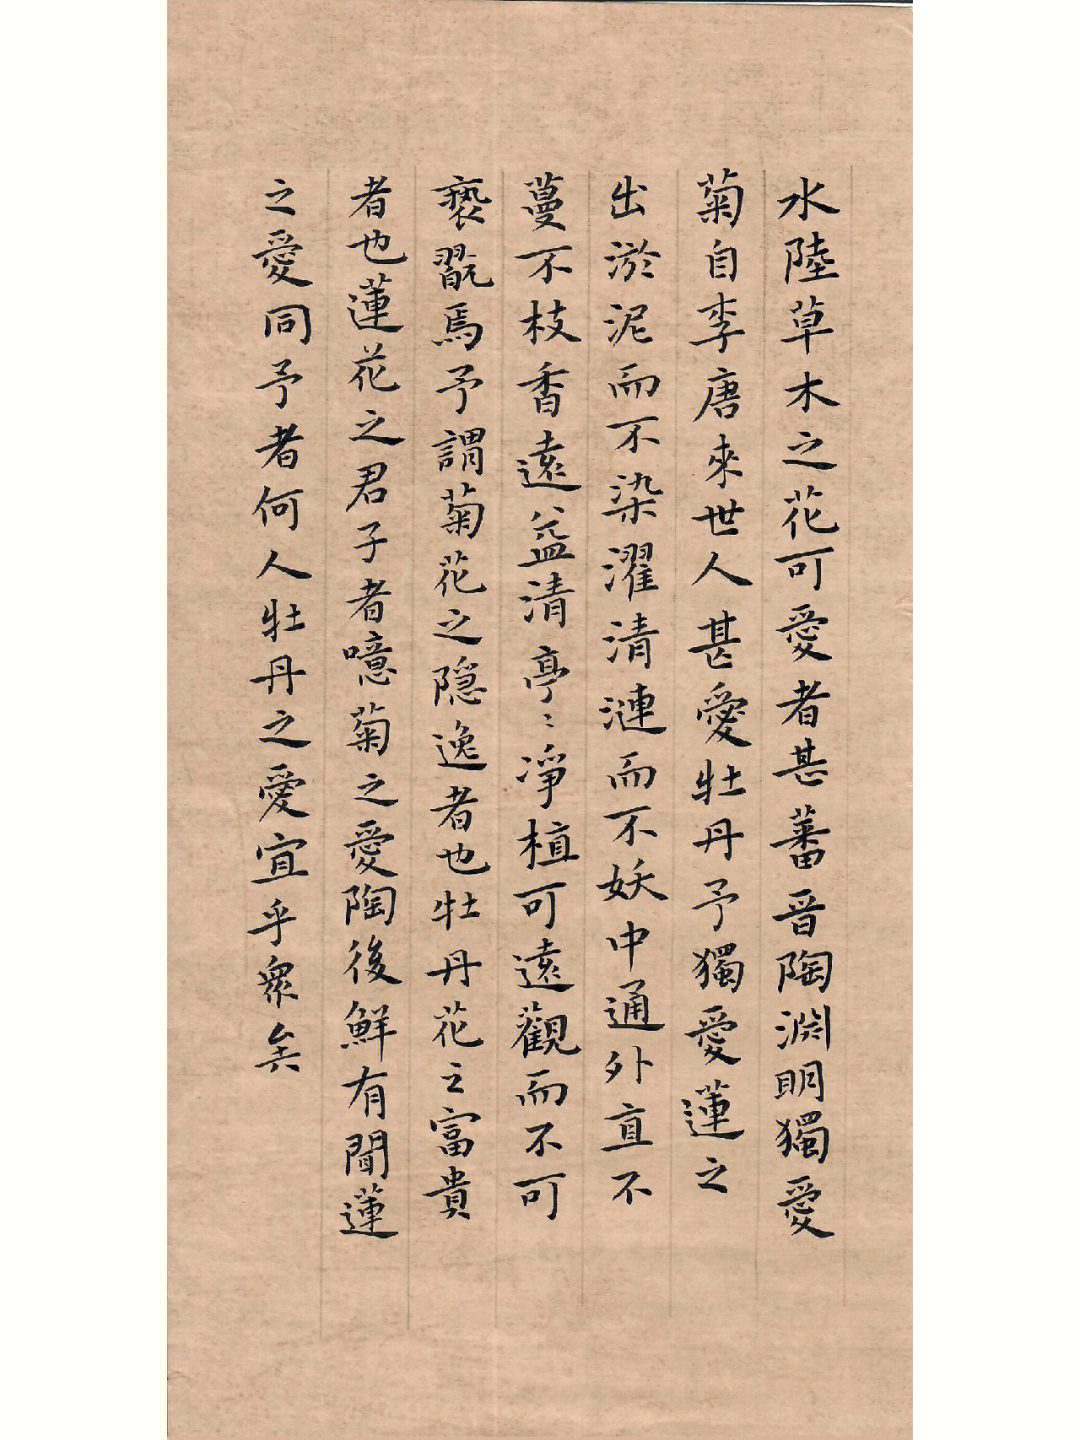 水陸草木之花可愛者甚蕃晉陶淵明獨愛
菊自李唐來世人甚愛牡丹予獨愛蓮之
出淤泥而不染濯清漣而不妖中通外直不
蔓不枝香遠益清亭〻淨植可遠觀而不可
褻翫焉予謂菊花之隱逸者也牡丹花之富貴
者也蓮花之君子者噫菊之愛陶後鮮有聞蓮
之愛同予者何人牡丹之愛宜乎衆矣